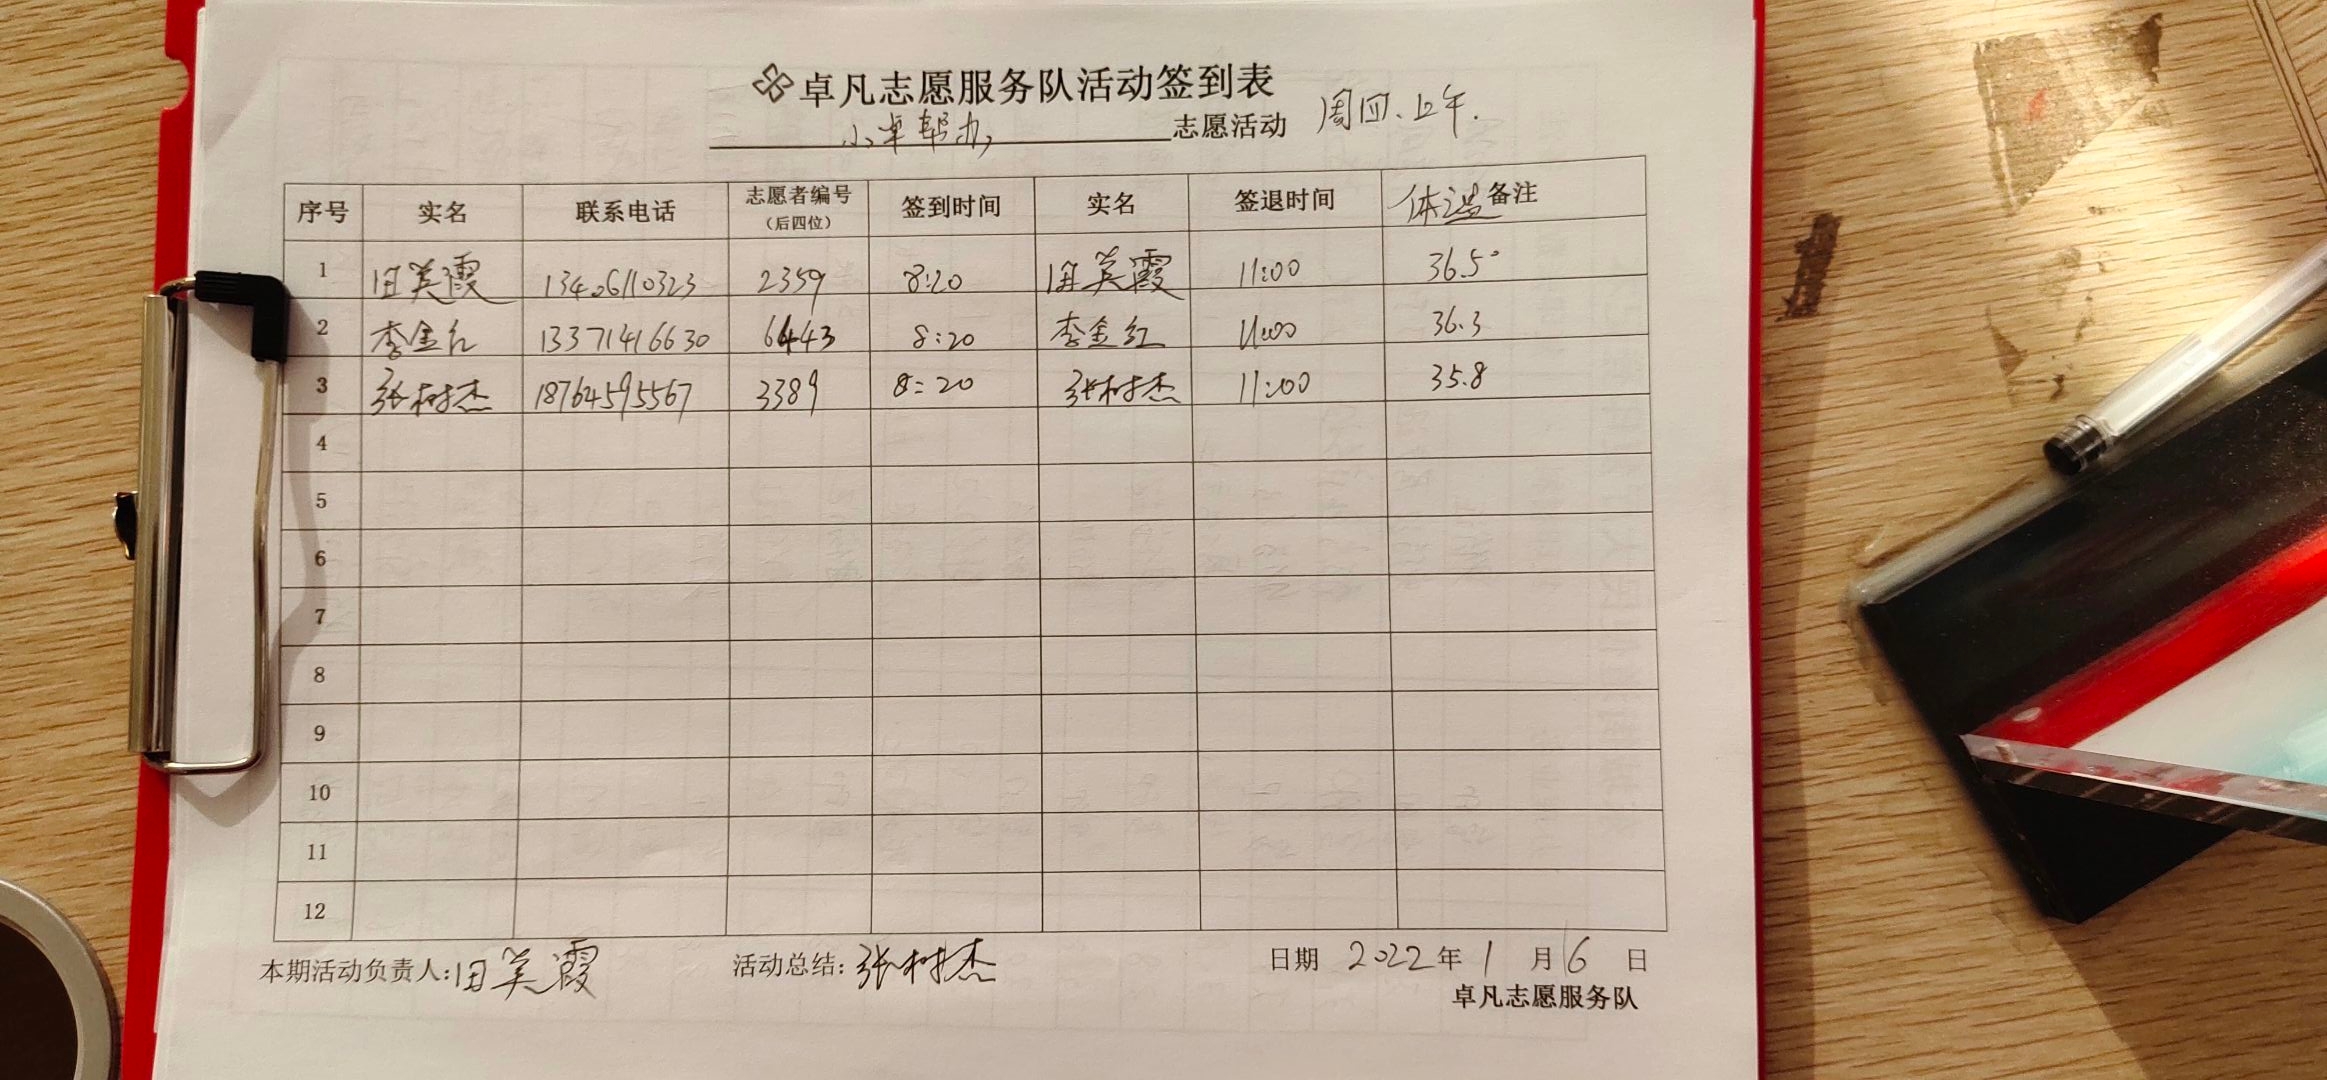 卓凡志愿服务队活动签到表
小卓帮办 志愿活动 周四、上午.
序号 实名 联系电话 志愿者编号（后四位） 签到时间 实名 签退时间 体温备注
1 田美霞 13406110323 2359 8:20 田美霞 11:00 36.5°
2 李金红 13371416630 6443 8:20 李金红 11:00 36.3
3 张树杰 18764595567 3389 8:20 张树杰 11:00 35.8
4
5
6
7
8
9
10
11
12
本期活动负责人:田美霞 活动总结:张树杰 日期 2022年1月6日
卓凡志愿服务队